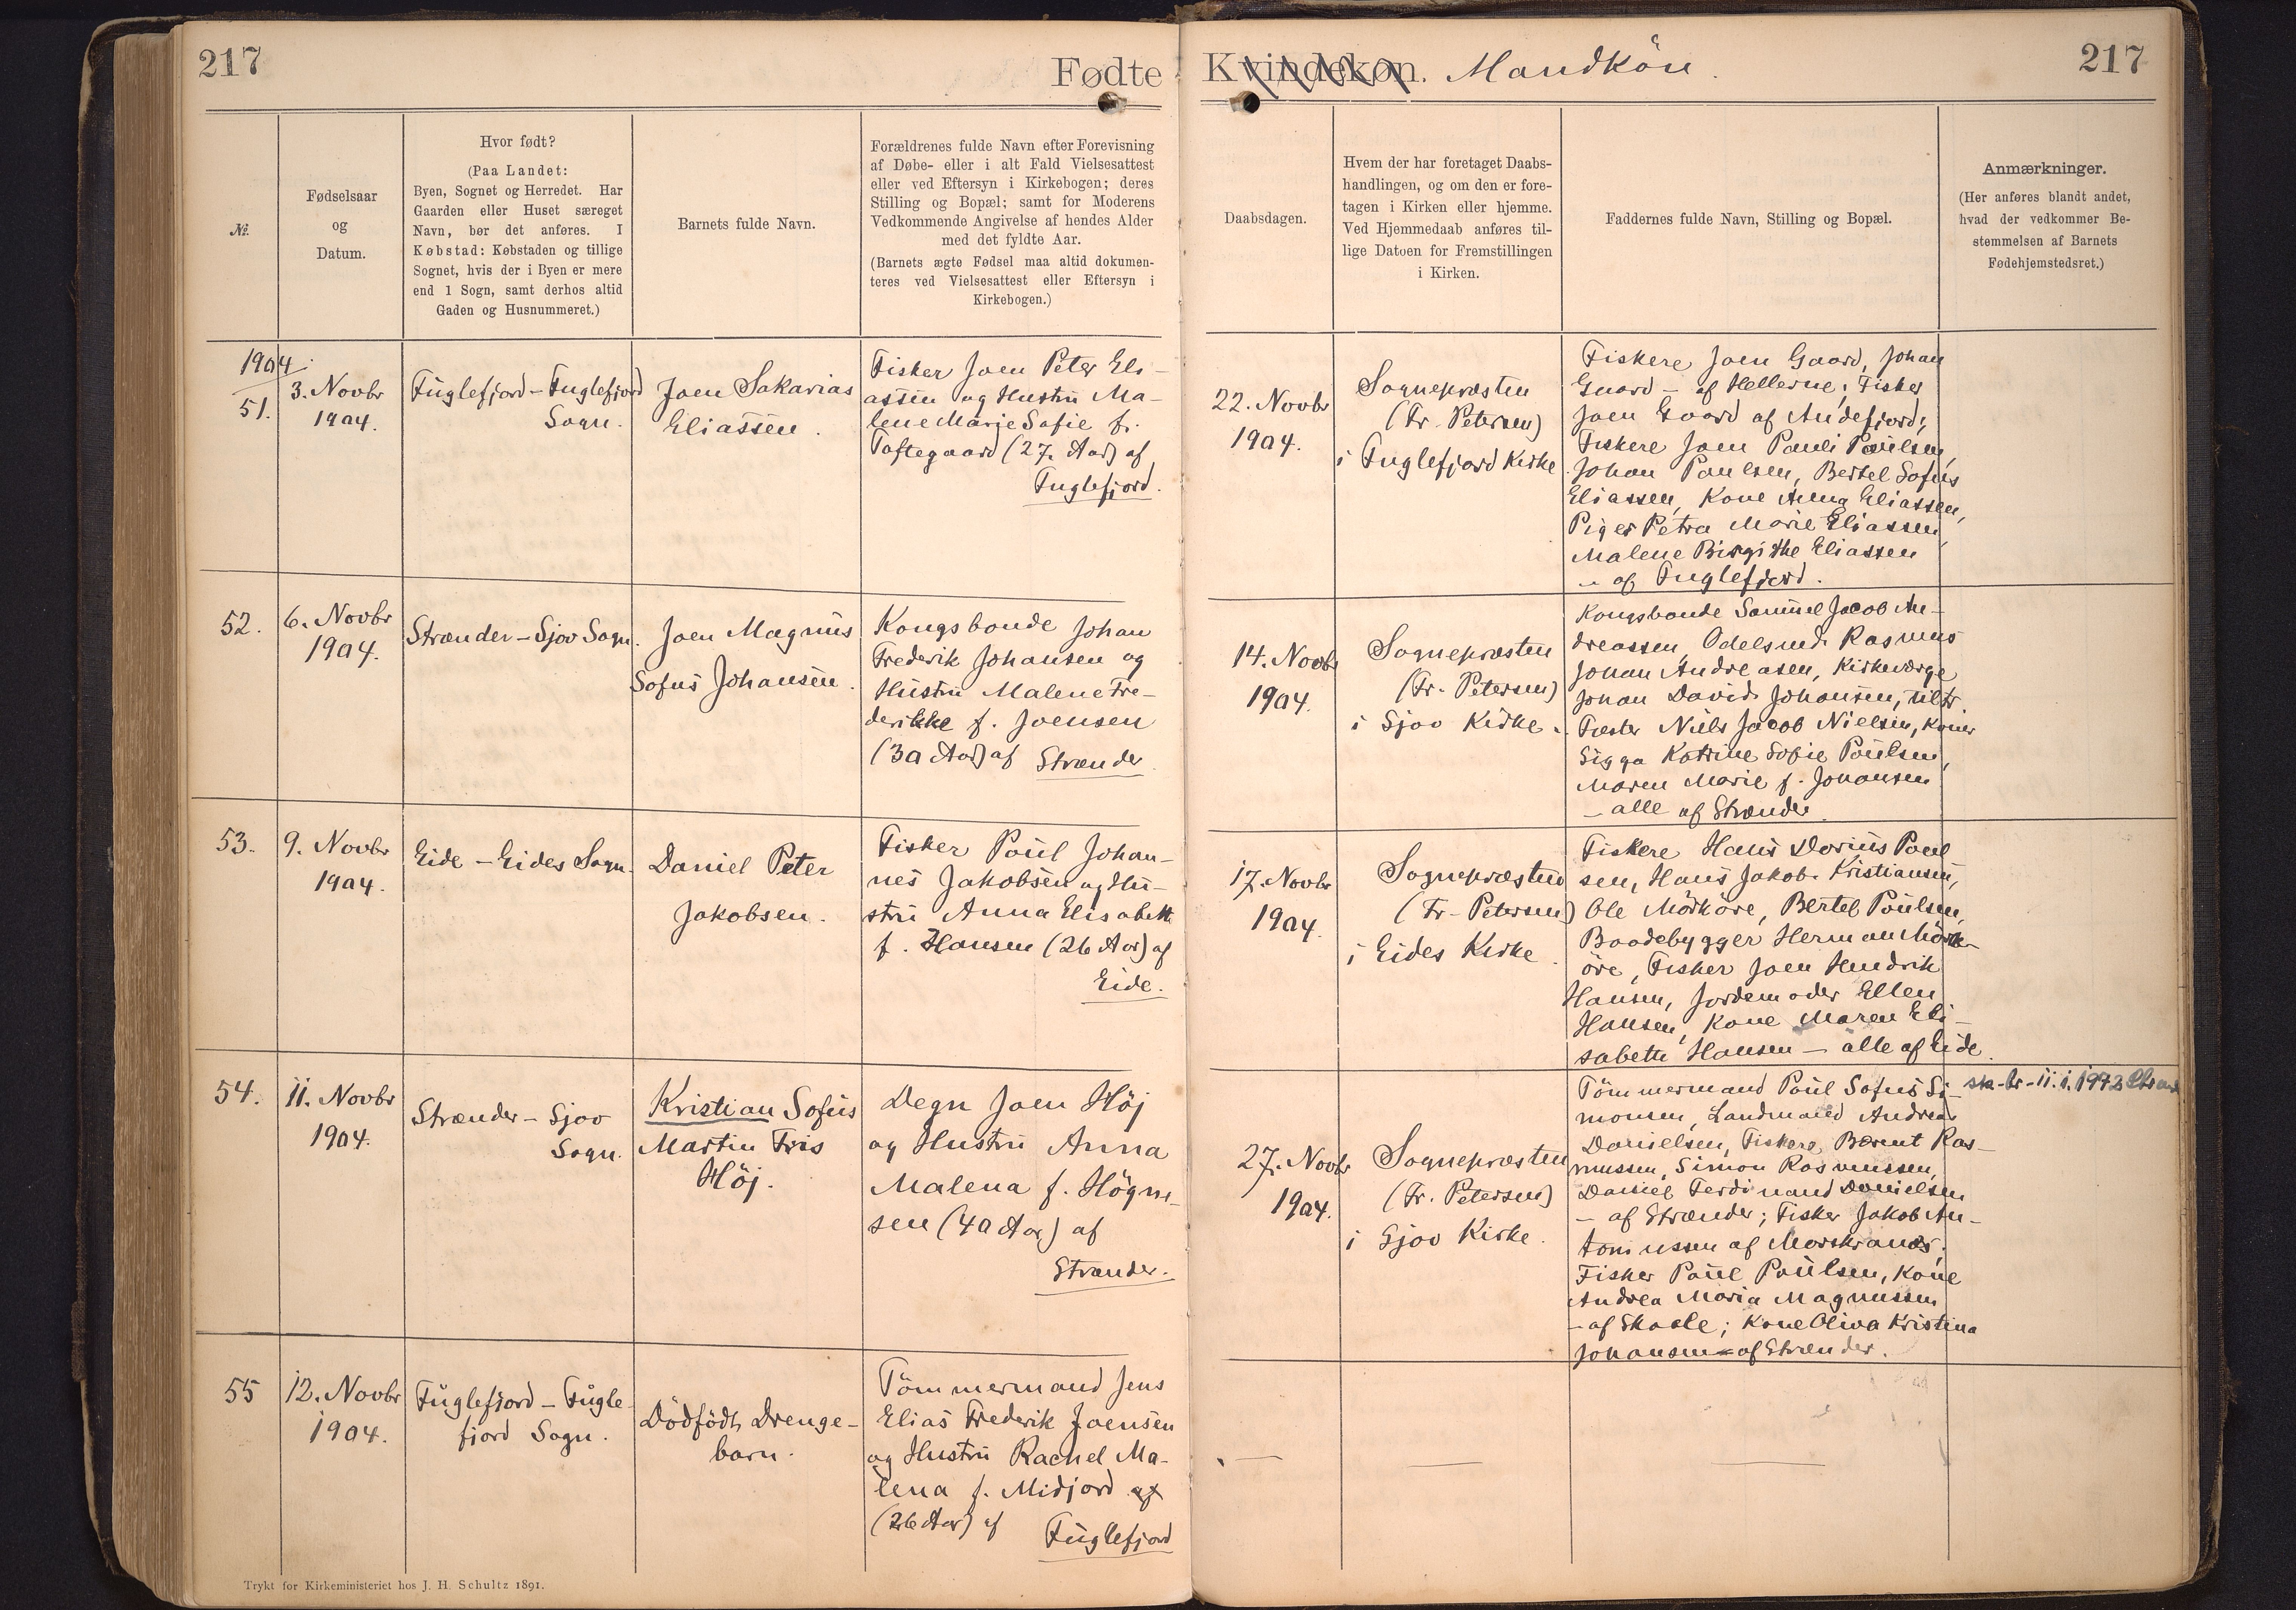 217
Fødte Kvindekøn. Mandkön.
217
№.
Fødselsaar
og
Datum.
Hvor født?
(Paa Landet:
Byen, Sognet og Herredet. Har
Gaarden eller Huset særeget
Navn, bør det anføres. I
Købstad: Købstaden og tillige
Sognet, hvis der i Byen er mere
end 1 Sogn, samt derhos altid
Gaden og Husnummeret.)
Barnets fulde Navn.
Forældrenes fulde Navn efter Forevisning
af Døbe- eller i alt Fald Vielsesattest
eller ved Eftersyn i Kirkebogen; deres
Stilling og Bopæl; samt for Moderens
Vedkommende Angivelse af hendes Alder
med det fyldte Aar.
(Barnets ægte Fødsel maa altid dokumen-
teres ved Vielsesattest eller Eftersyn i
Kirkebogen.)
Daabsdagen.
Hvem der har foretaget Daabs-
handlingen, og om den er fore-
tagen i Kirken eller hjemme.
Ved Hjemmedaab anføres til-
lige Datoen for Fremstillingen
i Kirken.
Faddernes fulde Navn, Stilling og Bopæl.
Anmærkninger.
(Her anføres blandt andet,
hvad der vedkommer Be-
stemmelsen af Barnets
Fødehjemstedsret.)
1904.
51.
3. Novbr
1904.
Fuglefjord - Fuglefjord
Sogn.
Joen Sakarias
Eliassen.
Fisker Joen Peter Eli-
assen og Hustru Ma-
lene Marie Sofie f.
Toftegaard (27 Aar) af
Fuglefjord.
22. Novbr
1904.
Sognepræsten
(Fr. Petersen)
i Fuglefjord Kirke
Fiskere Joen Gaard, Johan
Gaard - af Hellerne; Fisker
Joen Gaard af Andefjord;
Fiskere Joen Pauli Poulsen,
Johan Poulsen, Bertel Sofus
Eliassen, Kone Anna Eliassen,
Piger Petra Marie Eliassen,
Malene Birgithe Eliassen
- af Fuglefjord.
52.
6. Novbr
1904.
Strænder - Sjov Sogn.
Joen Magnus
Sofus Johansen.
Kongsbonde Johan
Frederik Johansen og
Hustru Malene Fre-
derikke f. Joensen
(30 Aar) af Strænder.
14. Novbr
1904.
Sognepræsten
(Fr. Petersen)
i Sjov Kirke.
Kongsbonde Samuel Jacob An-
dreassen, Odelsmd. Rasmus
Johan Andreasen, Kirkeværge
Johan David Johansen, tiltr.
Fæster Niels Jacob Nielsen, Koner
Sigga Katrine Sofie Poulsen,
Maren Marie f. Johansen
- alle af Strænder.
53.
9. Novbr
1904.
Eide - Eides Sogn.
Daniel Peter
Jakobsen.
Fisker Poul Johan-
nes Jakobsen og Hu-
stru Anna Elisabeth
f. Hansen (26 Aar) af
Eide.
17. Novbr
1904.
Sognepræsten
(Fr. Petersen)
i Eides Kirke.
Fiskere Hans Dorius Poul
sen, Hans Jakob Kristiansen,
Ole Mörköre, Bertel Poulsen,
Baadebygger Herman Mörk-
öre, Fisker Joen Hendrik
Hansen, Jordemoder Ellen
Hansen, Kone Maren Eli-
sabeth Hansen - alle af Eide.
54.
11. Novbr
1904.
Strænder - Sjov
Sogn.
Kristian Sofus
Martin Fris
Höj.
Degn Joen Höj
og Hustru Anna
Malena f. Högne-
sen (40 Aar) af
Strænder.
27. Novbr
1904.
Sognepræsten
(Fr. Petersen)
i Sjov Kirke.
Tömmermand Poul Sofus Si-
monsen, Landmand Andreas
Danielsen, Fiskere Berent Ras-
mussen, Simon Rasmussen,
Daniel Ferdinand Danielsen
- af Strænder; Fisker Jakob An-
toniussen af Morskranes;
Fisker Poul Poulsen, Kone
Andrea Maria Magnussen
- af Skaale; Kone Oliva Kristina
Johansen - af Strænder.
11.1.1972
55
12. Novbr
1904.
Fuglefjord - Fugle-
fjord Sogn.
Dödfödt Drenge-
barn.
Tömmermand Jens
Elias Frederik Joensen
og Hustru Rachel Ma-
lena f. Midjord af
(26 Aar) af
Fuglefjord
Trykt for Kirkeministeriet hos J. H. Schultz 1891.